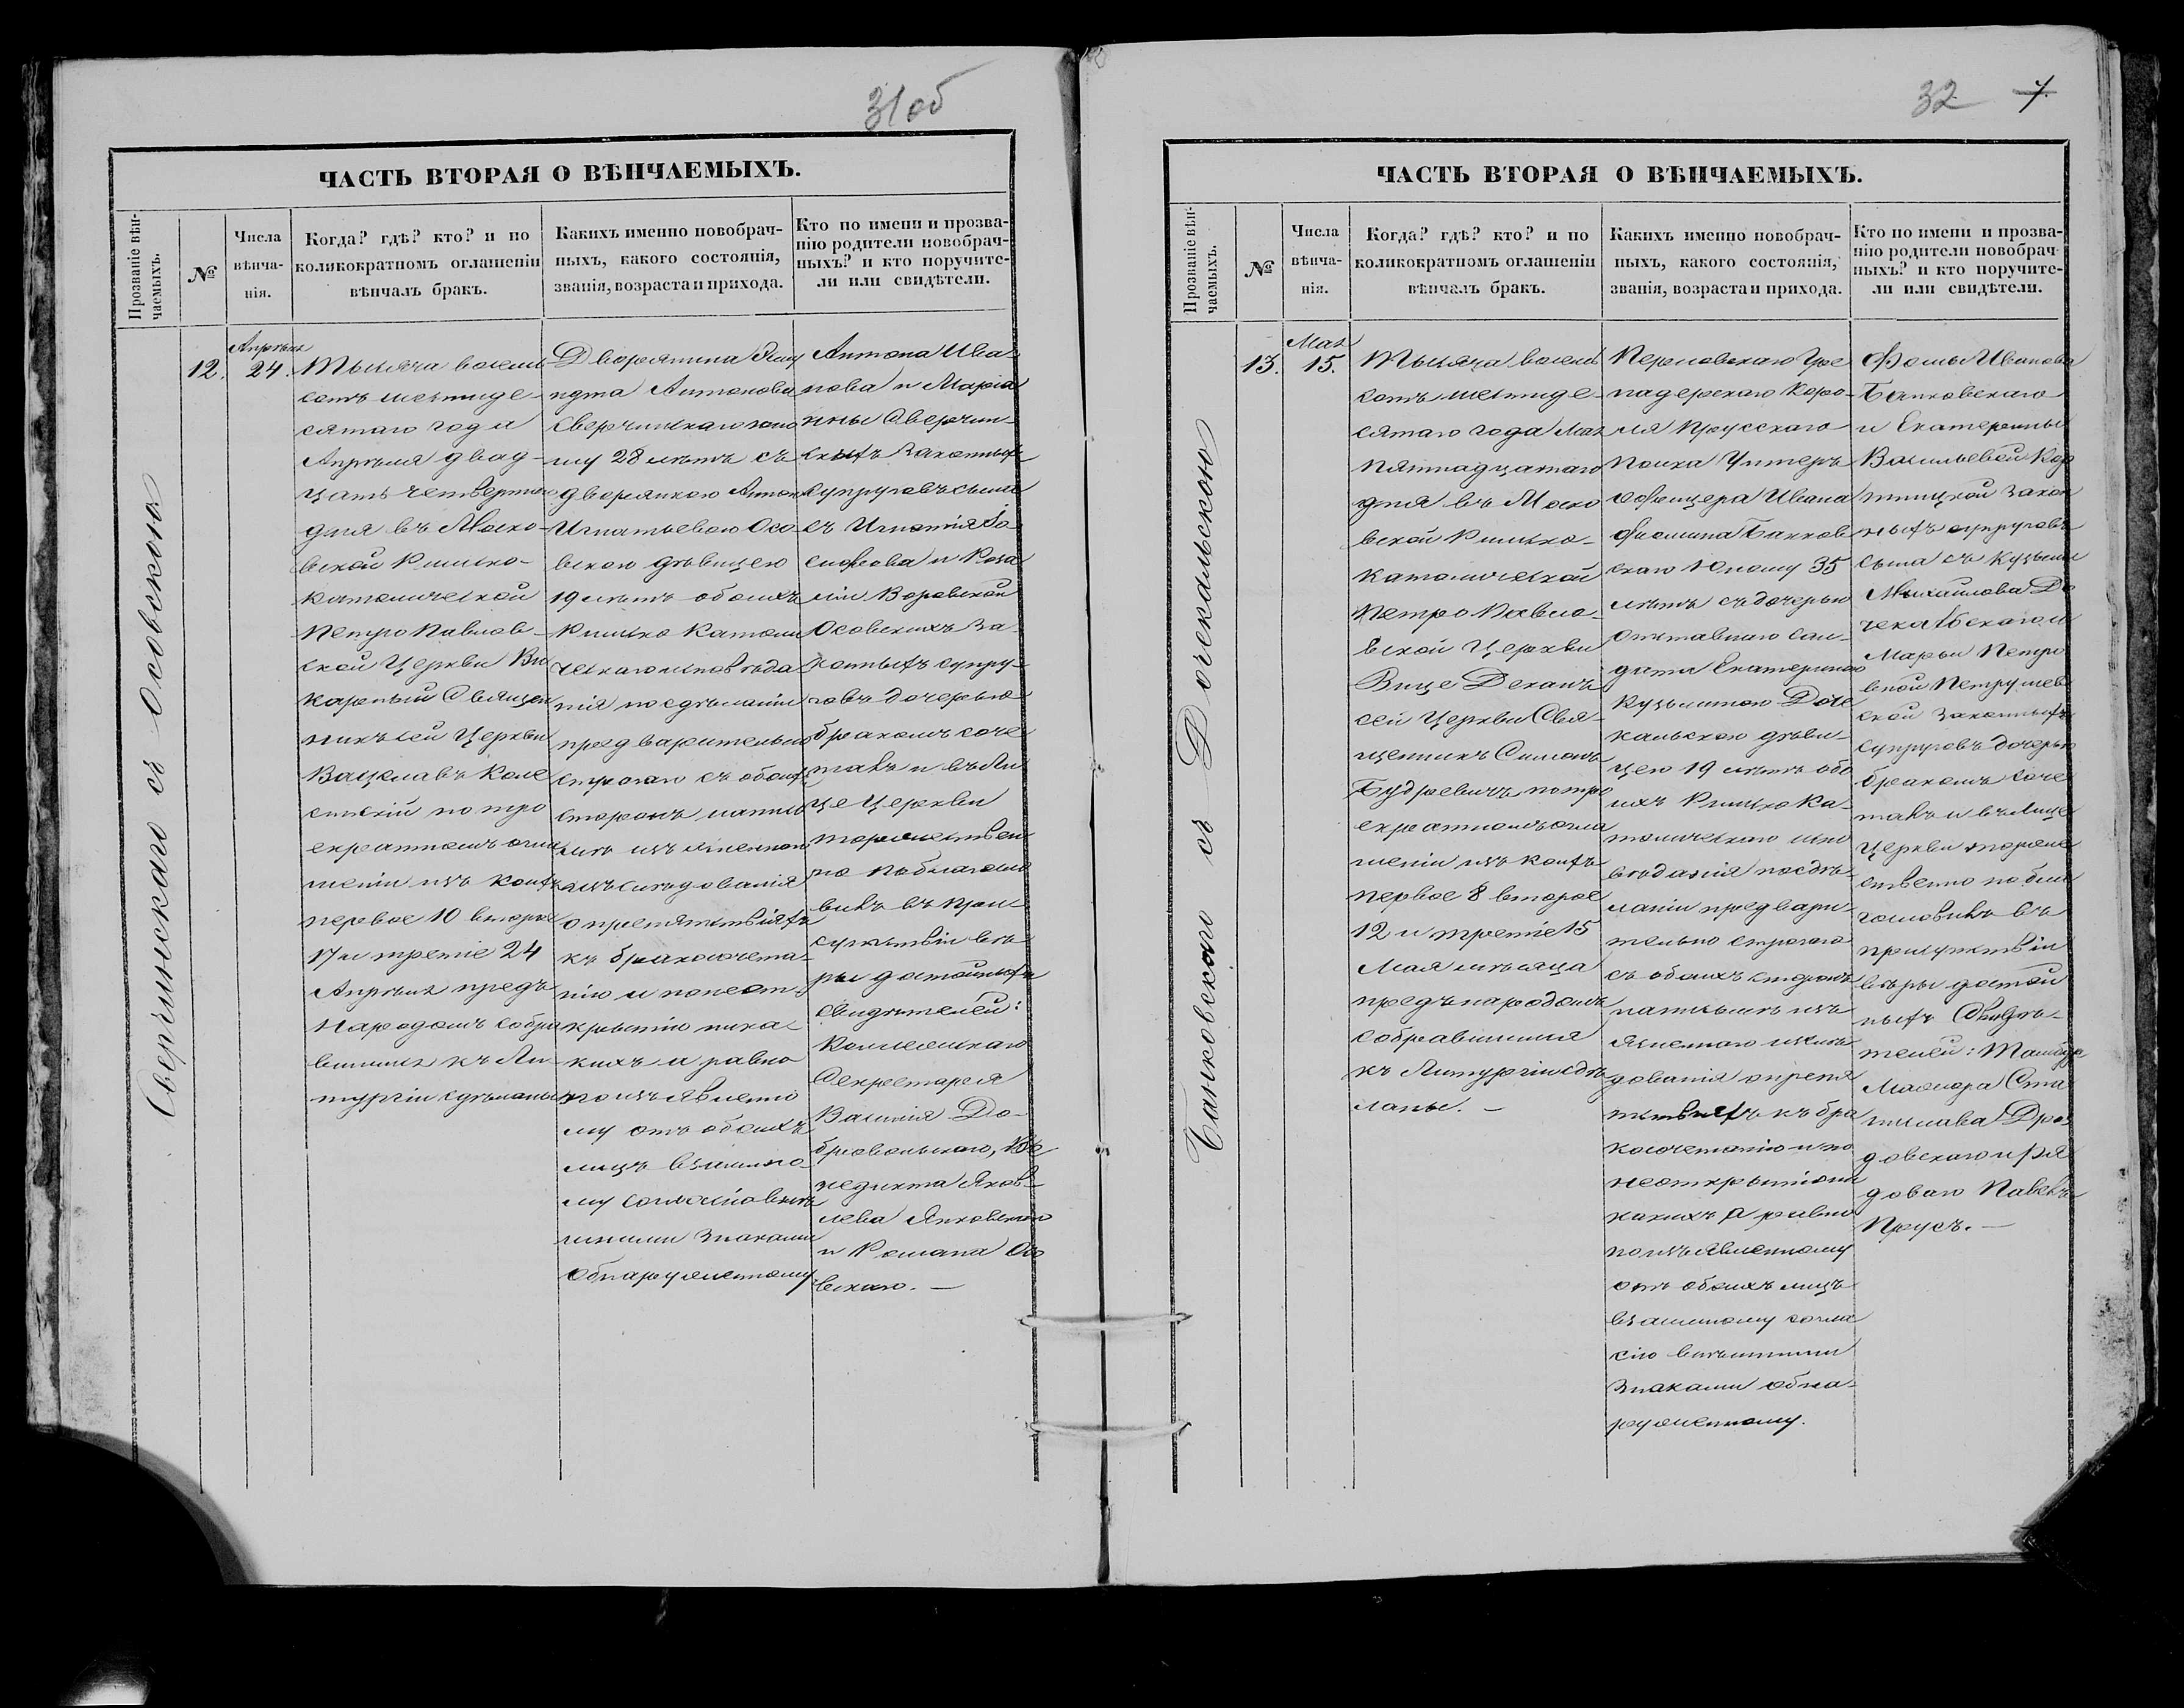 31об
ЧАСТЬ ВТОРАЯ О ВѢНЧАЕМЫХЪ.
Прозваніе вѣн-
чаемыхъ.
№
Числа
вѣнча-
нія.
Когда? гдѣ? кто? и по
коликократномъ оглашеніи
вѣнчалъ бракъ.
Какихъ именно новобрач-
ныхъ, какого состоянія,
званія, возраста и прихода.
Кто по имени и прозва-
нію родители новобрач-
ныхъ? и кто поручите-
ли или свидѣтели.
Сверчинскаго съ Осовскою
12.
Апрѣль
24.
Тысяча восемь
сотъ шестиде-
сятаго года
Апрѣля двад-
цать четвертаго
дня въ Моско-
вской Римско-
католической
Петро Павлов-
ской Церкви Ви
карный Священ
никъ сей Церкви
Вацлавъ
по тро
екратномъ огла
шеніи изъ коихъ
первое 10 второе
17 и третіе 24
Апрѣля предъ
народомъ собра
вшимся къ Ли-
тургіи сдѣланы
Дворянина
Антонова
Сверчинскаго юно
шу 28 лѣтъ съ
дворянкою
Игнатьевою Осо
вскою дѣвицею
19 лѣтъ обоихъ
Римско Католи
ческаго исповѣда
нія по сдѣланіи
предварительно
строгаго съ обоихъ
сторонъ
изслѣдованія
о препятствіяхъ
къ бракосочета-
нію и по неот-
крытію ника
кихъ и равно
по изъявленно
му отъ обоихъ
лицъ взаимно-
му согласію внѣ
шними знаками
обнаруженному
Антона Ива
нова и Маріа
нны Сверчин-
скихъ законныхъ
супруговъ сына
съ Игнатія Іо-
сифова и Роза
ліи Воровской
Осовскихъ за-
конныхъ супру-
говъ дочерью
бракомъ соче
талъ и въ Ли
це Церкви
торжествен
но поблагосло
вилъ въ при
сутствіи вѣ-
ры достойныхъ
свидѣтелей:
Коллежскаго
Секретаря
Василія До-
бровольскаго, Бе
недикта Яков-
лева Янковскаго
и Романа Осо
вскаго. —
32 7.
ЧАСТЬ ВТОРАЯ О ВѢНЧАЕМЫХЪ.
Прозваніе вѣн-
чаемыхъ.
№
Числа
вѣнча-
нія.
Когда? гдѣ? кто? и по
коликократномъ оглашеніи
вѣнчалъ бракъ.
Какихъ именно новобрач-
ныхъ, какого состоянія,
званія, возраста и прихода.
Кто по имени и прозва-
нію родители новобрач-
ныхъ? и кто поручите-
ли или свидѣтели.
Банковскаго съ Дочекальскою
13.
Мая
15.
Тысяча восемь
сотъ шестиде-
сятаго года Мая
пятнадцатаго
дня въ Моско
вской Римско-
католической
Петро Павло-
вской Церкви
Вице Деканъ
сей Церкви Свя-
щенникъ Симонъ
Будревичъ по тро
екратномъ огла
шеніи изъ коихъ
первое 8 второе
12 и третіе 15
Мая мѣсяца
предъ народомъ
собравшимся
къ Литургіи сдѣ
ланы. —
Перновскаго Гре
надерскаго Коро-
ля Прусскаго
полка Унтеръ
офицера Ивана
Фомина Банков
скаго юношу 35
лѣтъ съ дочерью
отставнаго сол-
дата Екатериною
Кузьминою Доче
кальскою дѣви-
цею 19 лѣтъ обо
ихъ Римско Ка-
толическаго испо
вѣданія по сдѣ-
ланіи предвари-
тельно строгаго
съ обоихъ сторонъ
изслѣ
дованія о препя
тствіяхъ къ бра
косочетанію и по
неоткрытію ни
какихъ а равно
по изъявленному
отъ обоихъ лицъ
взаимному согла
сію внѣшними
знаками обна-
руженному.
Фомы Иванова
Банковскаго
и Екатерины
Васильевой Кор
тницкой закон
ныхъ супруговъ
сына съ Кузьмы
Михайлова До
чекальскаго и
Марьи Петро
вной Петрушев
ской законныхъ
супруговъ дочерью
бракомъ соче
талъ и въ Лице
Церкви торже
ственно побла
гословилъ въ
присутствіи
вѣры достой
ныхъ Свидѣ-
телей:
Маіора Ста
нислава Дроз
довскаго и Ря
доваго Павелъ
Прусъ. —